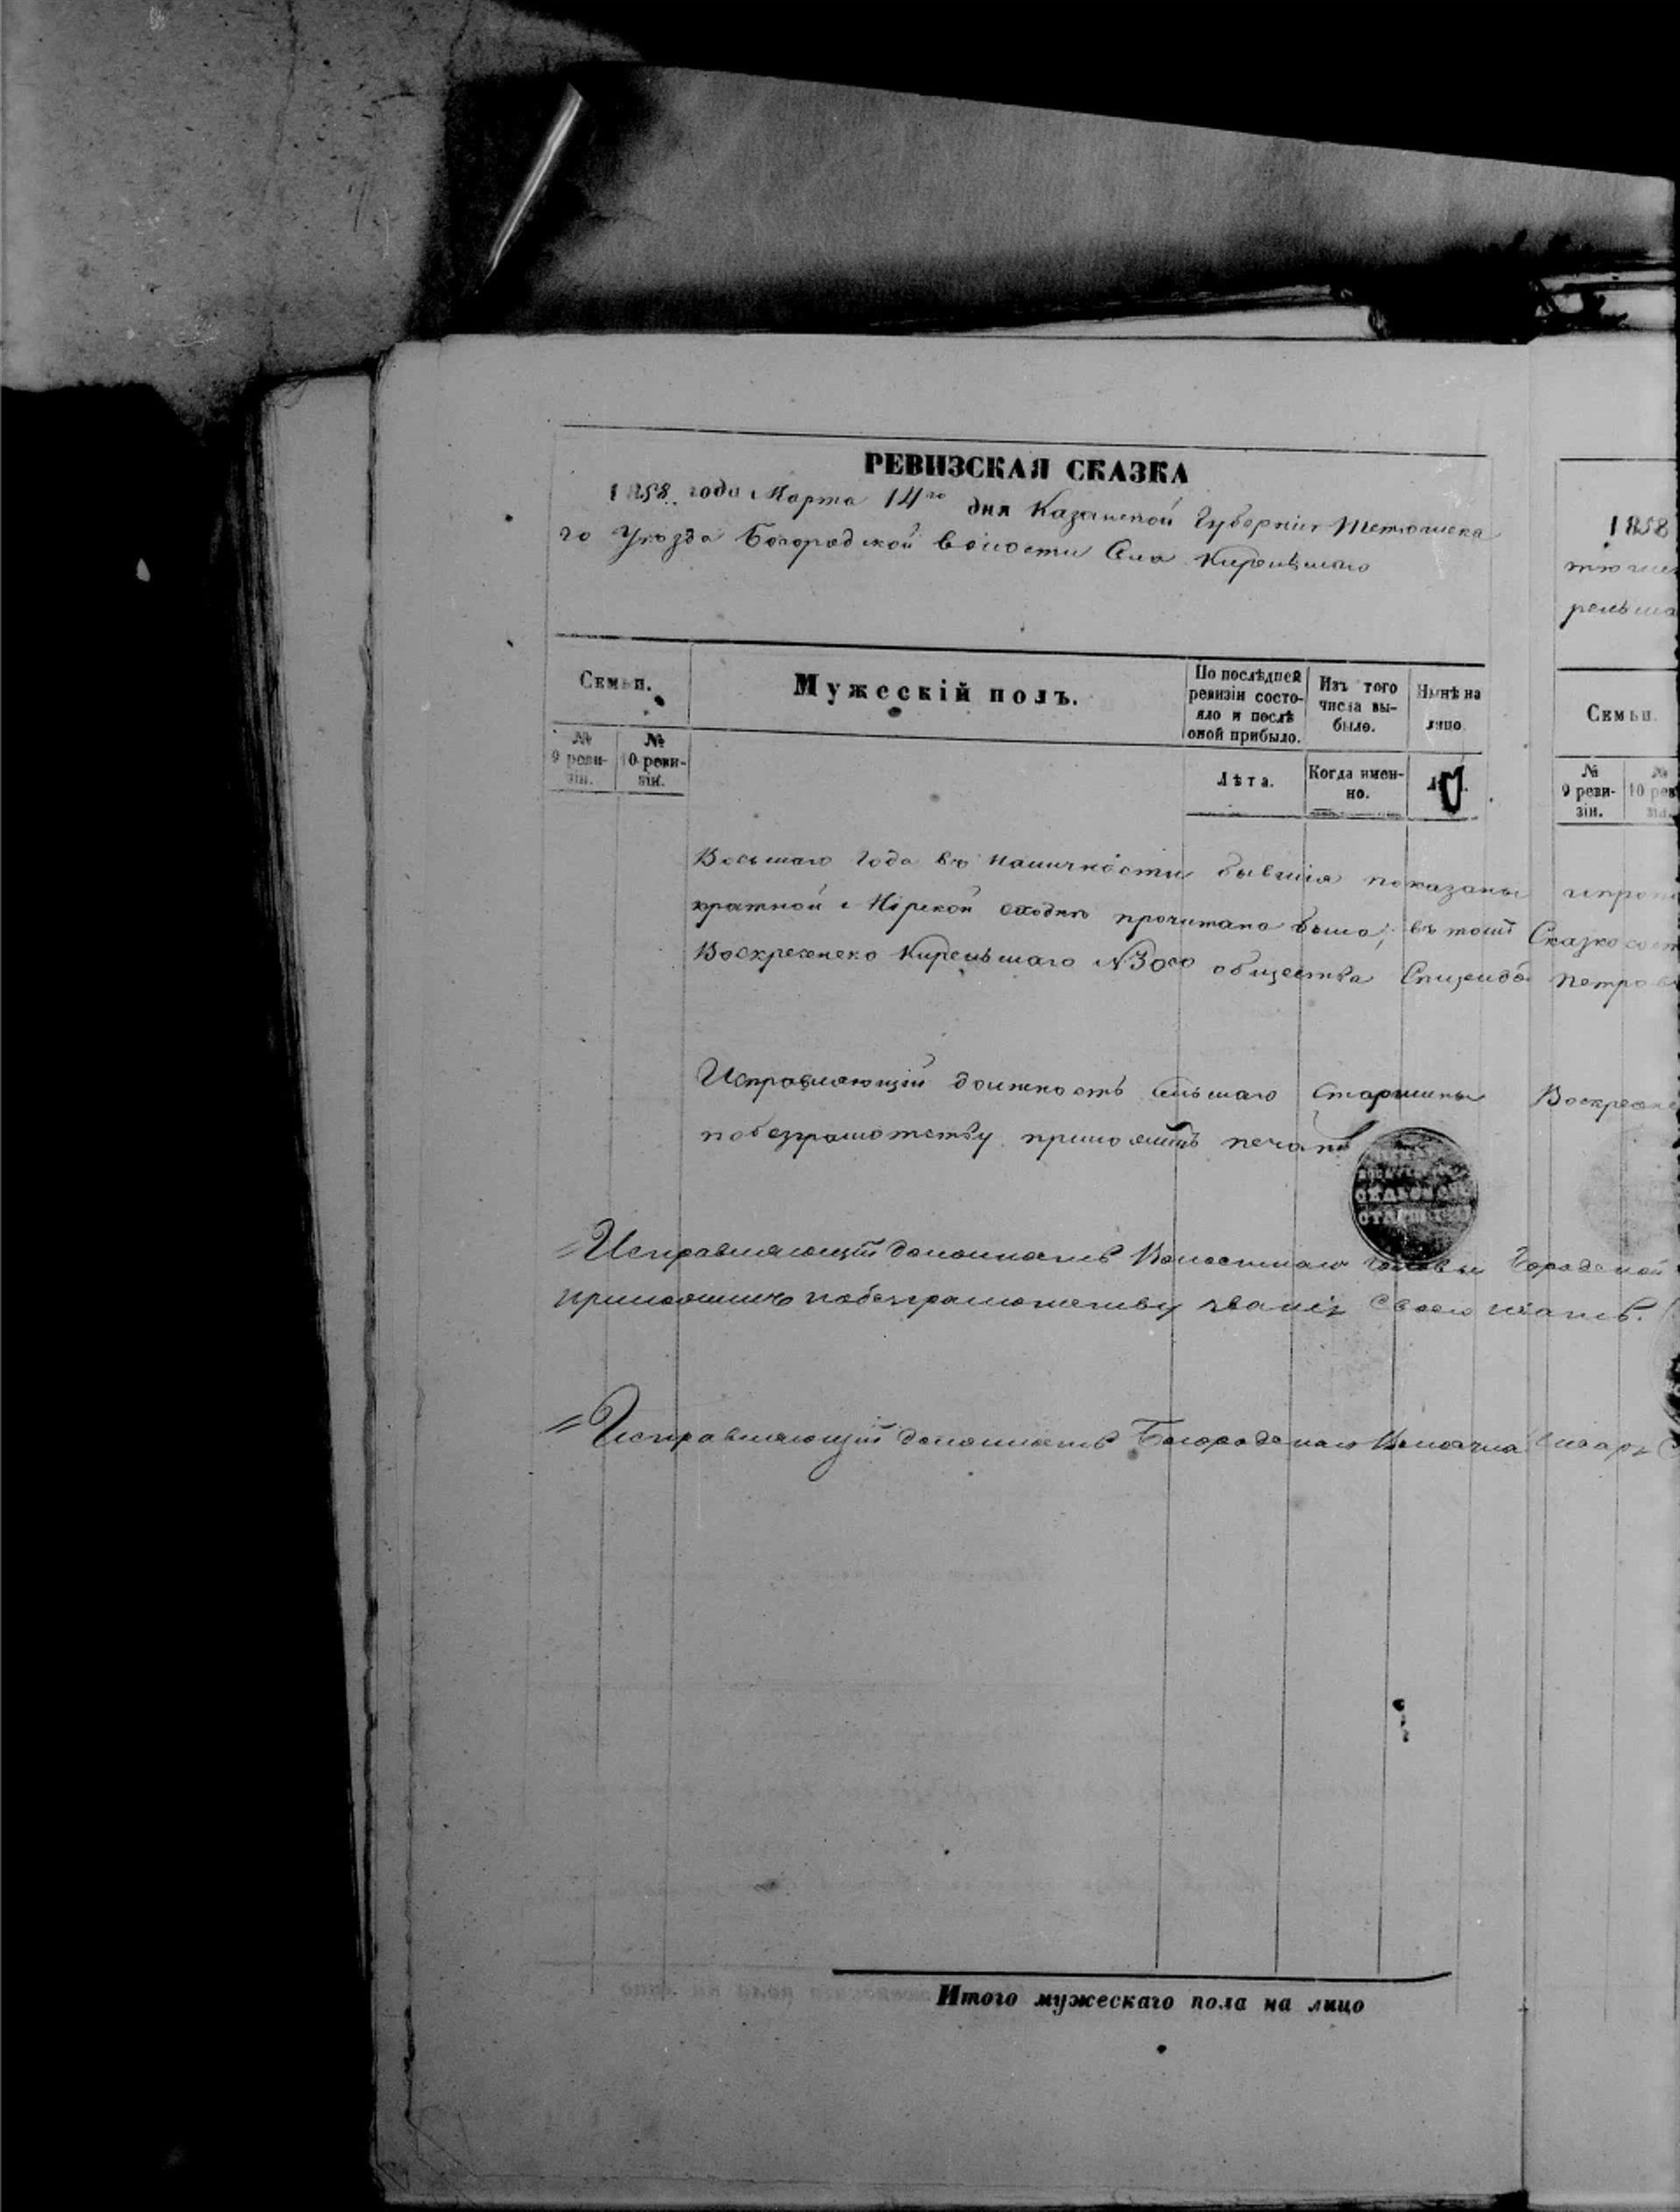 РЕВИЗСКАЯ СКАЗКА
1858 года Марта 14го дня Казанской Губерніи Тетюшска
го Уѣзда Богородской волости Села Кирельскаго
Семьи.
Мужескій полъ.
По послѣдней ревизіи состояло и послѣ оной прибыло.
Изъ того числа выбыло.
Нынѣ на лицо.
№ 9 ревизіи.
№ 10 ревизіи.
Лѣта.
Когда именно.
Восьмаго года въ наличности бывшія показаны
кратной Мірской сходкѣ прочитана была; въ той Сказкѣ
Воскресенско Кирельскаго № 3го общества Петров
Исправляющій должность сельскаго Старшины Воскресен
по безграмотству приложилъ печать
СЕЛЬСКАГО
СТАРШИНЫ
Исправляющій должность Волостнаго Головы
приложилъ по безграмотству своего печать.
Исправляющій должность Богородскаго Волостна
Итого мужескаго пола на лицо
1858
тюшс
рельска
Семьи.
№ 9 ревизіи.
№ 10 рев